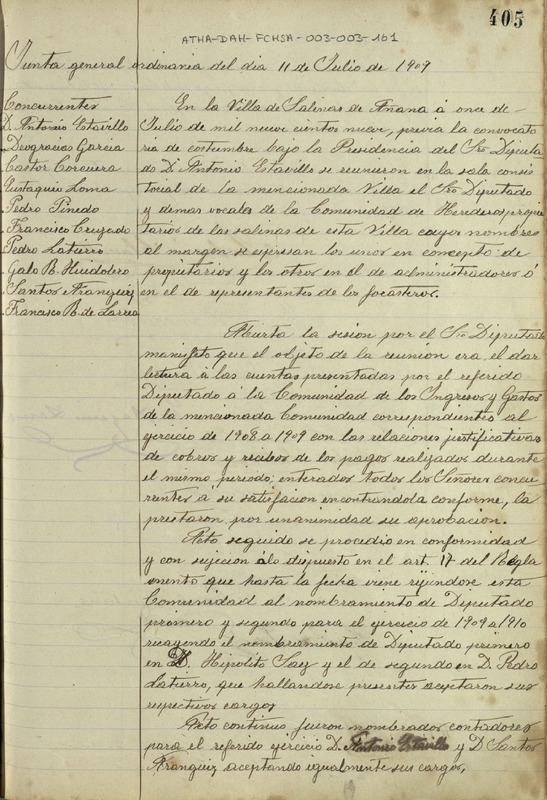 405
ATHA-DAH-FCHSA-003-003-161
Junta general ordinaria del dia 11 de Julio de 1909
Concurrentes
D. Antonio Etavillo
Deogracias Garcia
Castor Corcuera
Eustaquio Loma
Pedro Pinedo
Francisco Trepado
Pedro Latierro
Galo B. Huidobro
Santos Aranguiz
Francisco R. de Larrea
En la Villa de Salinas de Añana á once de
Julio de mil nueve cientos nueve, previa la convocato
ria de costumbre bajo la Presidencia del Sr. Diputa
do D. Antonio Etavillo se reunieron en la sala consis
torial de la mencionada Villa el Sr. Diputado
y demas vocales de la Comunidad de Herederos propie
tarios de las salinas de esta Villa cuyos nombres
al margen se espresan los unos en concepto de
propietarios y los otros en el de administradores ó
en el de representantes de los forasteros.
Abierta la sesion por el Sr. Diputado
manifestó que el objeto de la reunion era el dar
lectura á las cuentas presentadas por el referido
Diputado á la Comunidad de los Ingresos y Gastos
de la mencionada Comunidad correspondientes al
ejercicio de 1908 a 1909 con las relaciones justificativas
de cobros y recibos de los pagos realizados durante
el mismo periodo; enterados todos los Señores concu
rrentes á su satisfacion encontrandola conforme, la
prestaron por unanimidad su aprobacion.
Acto seguido se procedio en conformidad
y con sujecion á lo dispuesto en el art. 17 del Regla
mento que hasta la fecha viene rijiendose esta
Comunidad al nombramiento de Diputado
primero y segundo para el ejercicio de 1909 a 1910
recayendo el nombramiento de Diputado primero
en D. Hipolito Saez y el de segundo en D. Pedro
Latierro, que hallandose presentes aceptaron sus
respectivos cargos
Acto continuo fueron nombrados contadores
para el referido ejercicio D. Antonio Etavillo y D. Santos
Aranguiz aceptando igualmente sus cargos,